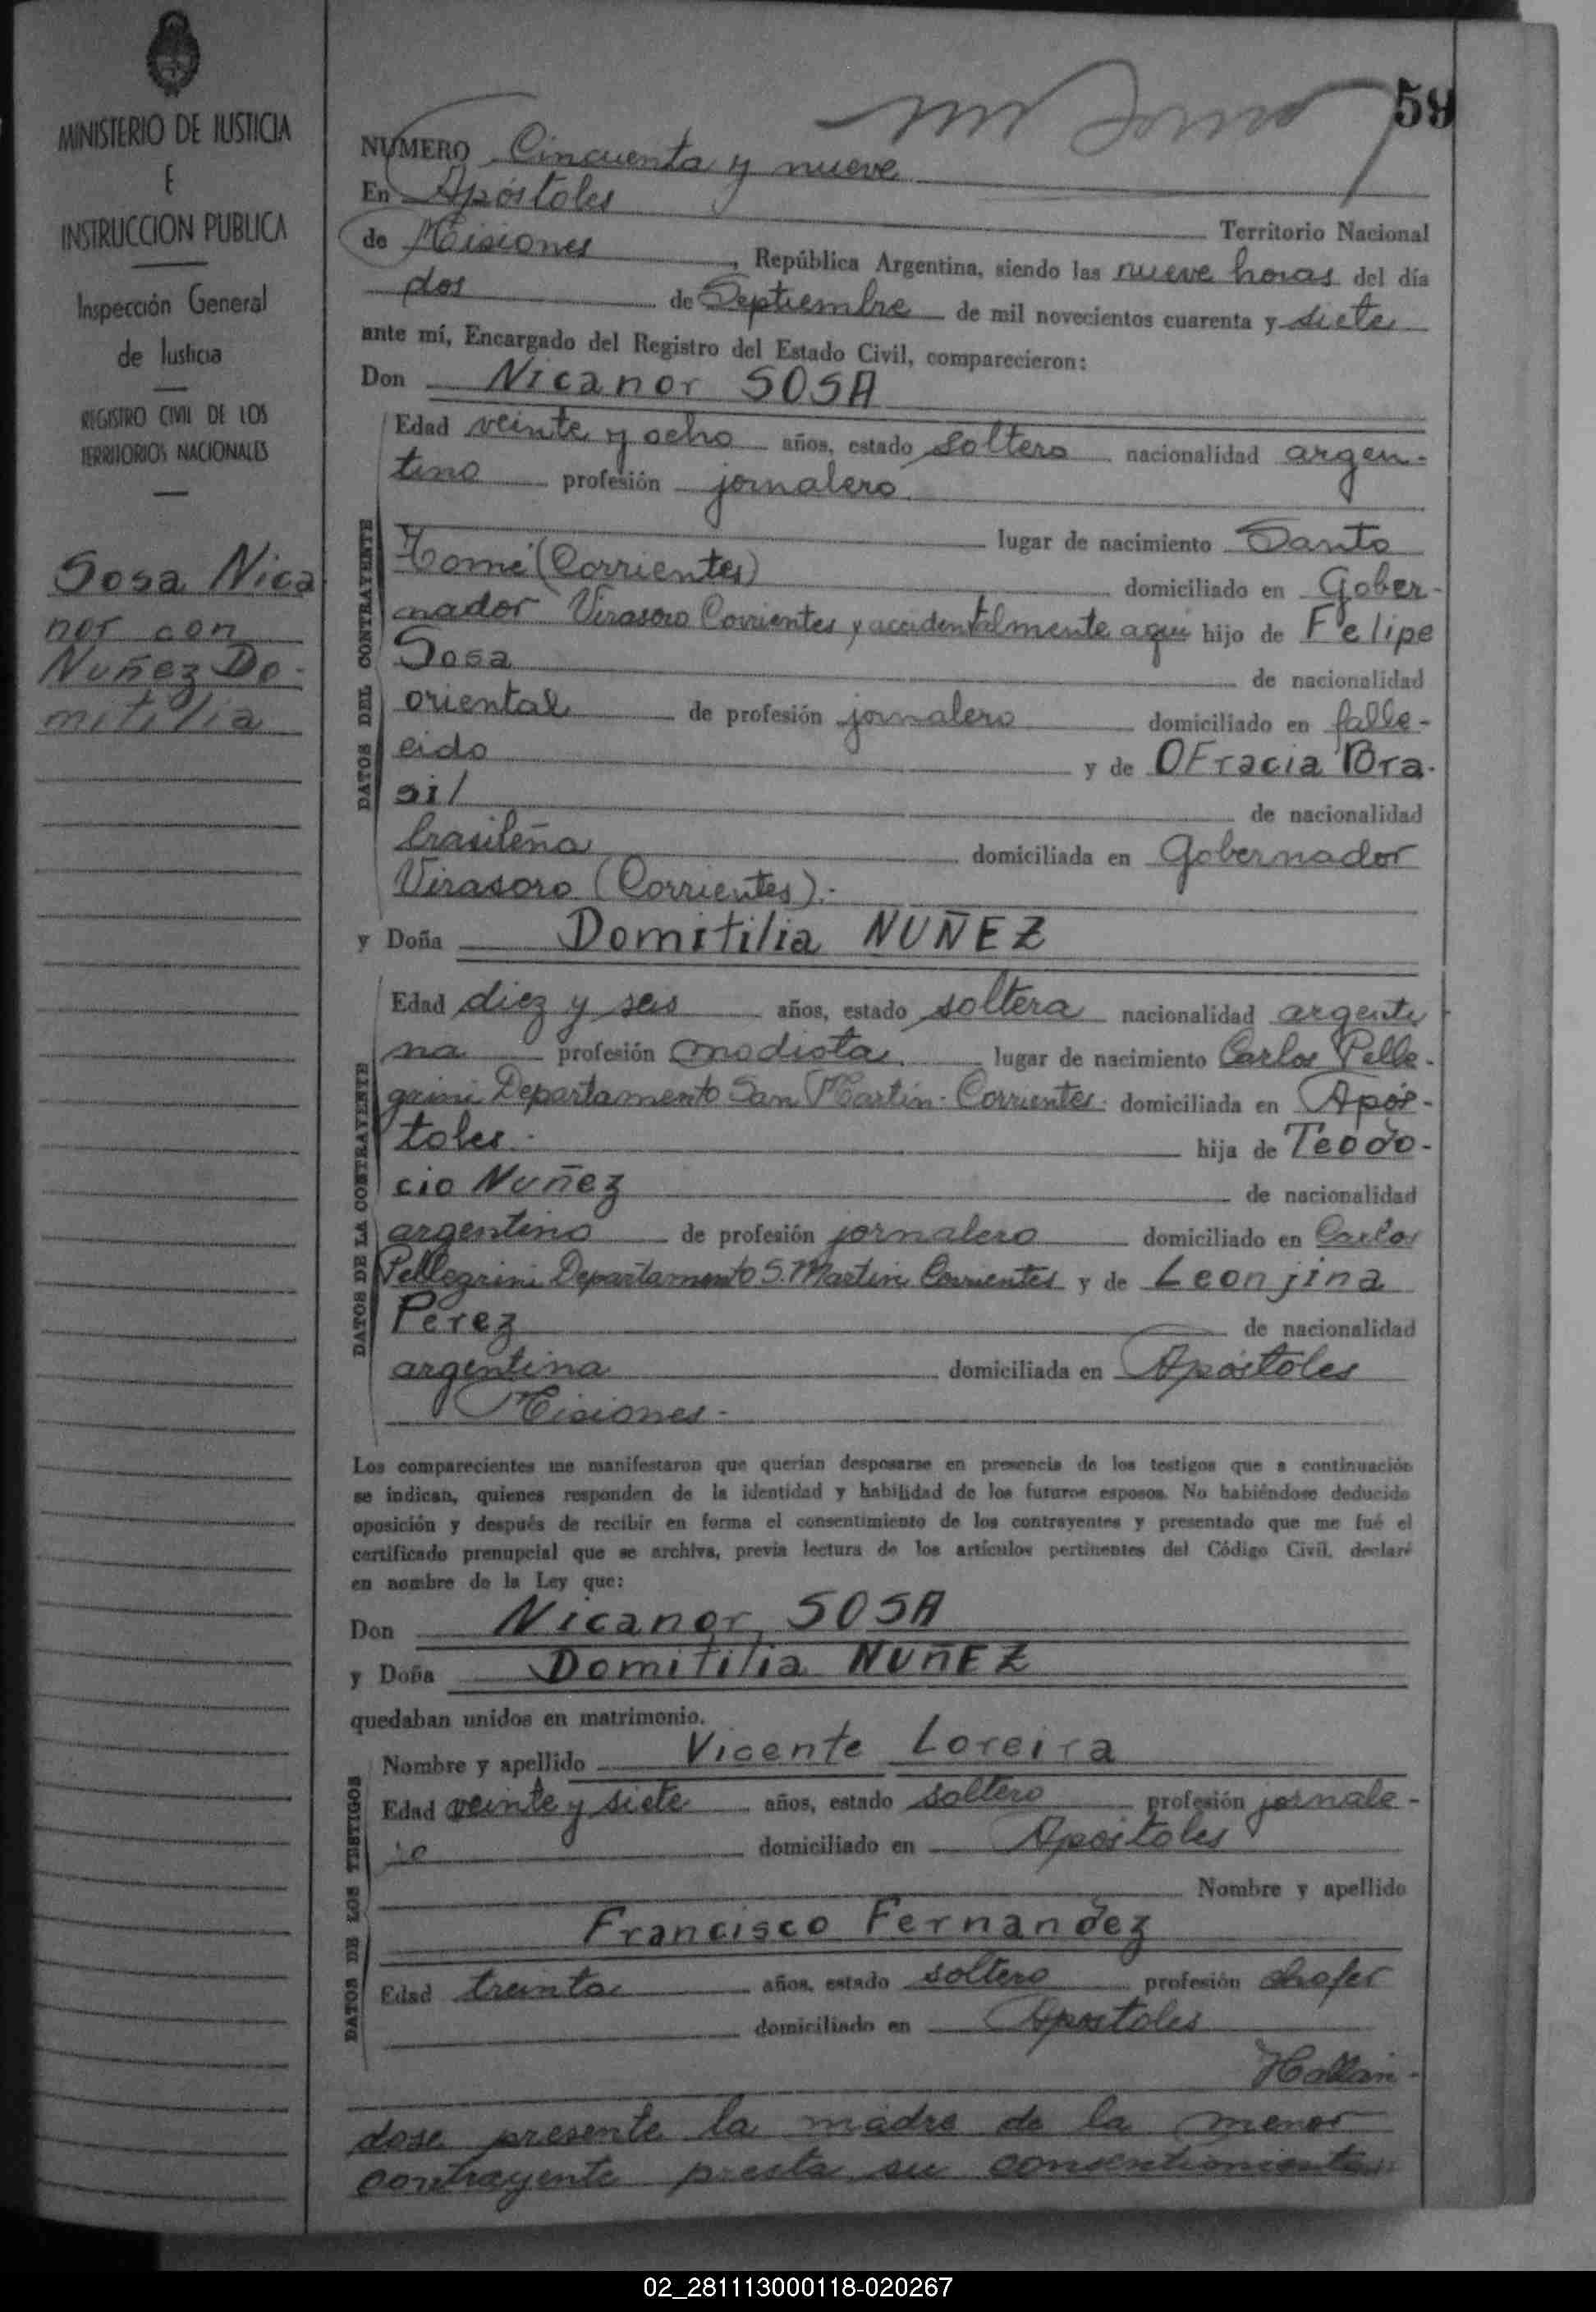 MINISTERIO DE JUSTICIA
E
INSTRUCCION PUBLICA
Inspección General
de Justicia
REGISTRO CIVIL DE LOS
TERRITORIOS NACIONALES
Sosa Nica
nor con
Nuñez Do-
mitilia
59
NUMERO Cincuenta y nueve
En Apóstoles
Territorio Nacional
de Misiones, República Argentina, siendo las nueve horas del día
dos de Septiembre de mil novecientos cuarenta y siete
ante mí, Encargado del Registro del Estado Civil, comparecieron:
Don Nicanor SOSA
DATOS DEL CONTRAYENTE
Edad veinte y ocho años, estado soltero nacionalidad argen-
tino profesión jornalero
lugar de nacimiento Santo
Tomé (Corrientes) domiciliado en Gober-
nador Virasoro Corrientes y accidentalmente aquí hijo de Felipe
Sosa de nacionalidad
oriental de profesión jornalero domiciliado en falle-
cido y de OFracia Bra-
sil de nacionalidad
brasileña domiciliada en Gobernador
Virasoro (Corrientes).-
y Doña Domitilia NUÑEZ
DATOS DE LA CONTRAYENTE
Edad diez y seis años, estado soltera nacionalidad argenti
na profesión modista lugar de nacimiento Carlos Pelle-
grini Departamento San Martin-Corrientes- domiciliada en Após-
toles.- hija de Teodo-
cio Nuñez de nacionalidad
argentino de profesión jornalero domiciliado en Carlos
Pellegrini Departamento S. Martin Corrientes y de Leonjina
Perez de nacionalidad
argentina domiciliada en Apóstoles
Misiones.-
Los comparecientes me manifestaron que querían desposarse en presencia de los testigos que a continuación
se indican, quienes responden de la identidad y habilidad de los futuros esposos. No habiéndose deducido
oposición y después de recibir en forma el consentimiento de los contrayentes y presentado que me fué el
certificado prenupcial que se archiva, previa lectura de los artículos pertinentes del Código Civil, declaré
en nombre de la Ley que:
Don Nicanor SOSA
y Doña Domitilia NUÑEZ
quedaban unidos en matrimonio.
DATOS DE LOS TESTIGOS
Nombre y apellido Vicente Loreira
Edad veinte y siete años, estado soltero profesión jornale-
ro domiciliado en Apóstoles
Nombre y apellido
Francisco Fernandez
Edad treinta años, estado soltero profesión chofer
domiciliado en Apostoles
Hallan-
dose presente la madre de la menor
contrayente presta su consentimiento
02_281113000118-020267